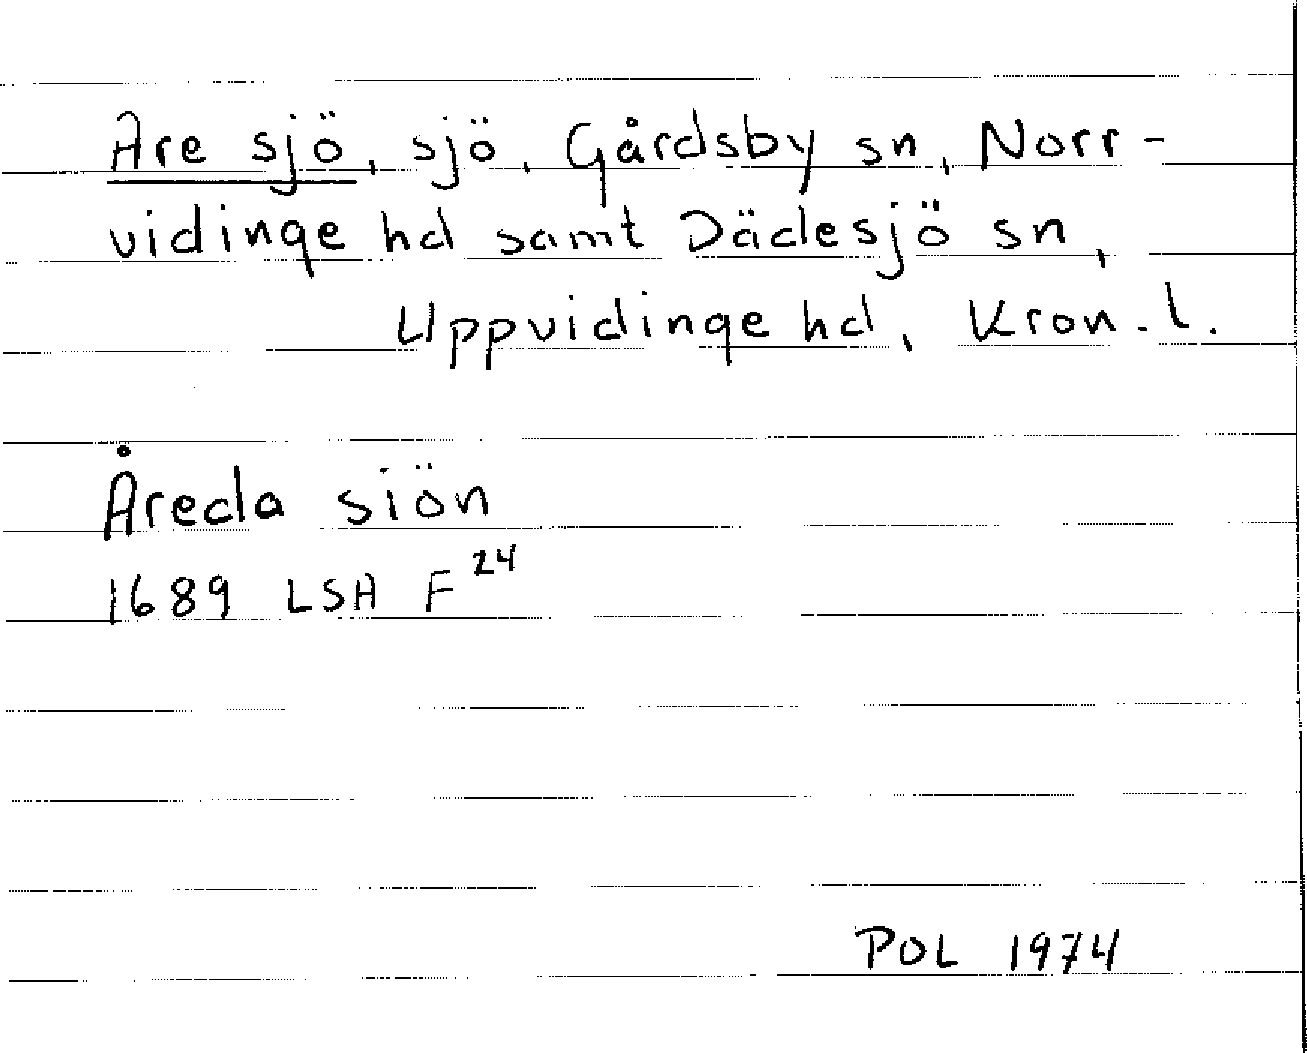 Are sjö, sjö, Gårdsby sn, Norr-
vidinge hd samt Dädesjö sn,
Uppvidinge hd, Kron. l.
Åreda siön
1689 LSA F²⁴
POL 1974